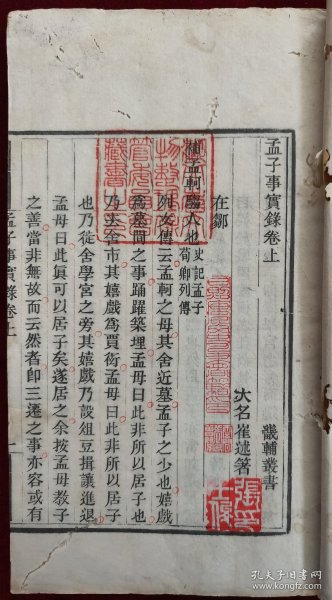 孟子事實錄卷上
畿輔叢書
大名崔述著
在鄒
補孟軻鄒人也史記孟子荀卿列傳
列女傳云孟軻之母其舍近墓孟子之少也嬉戲
為墓間之事踊躍築埋孟母曰此非所以居子也
乃去舍市其嬉戲為賈衒孟母曰此非所以居子
也乃徙舍學宮之旁其嬉戲乃設俎豆揖讓進退
孟母曰此眞可以居子矣遂居之余按孟母敎子
之善當非無故而云然者卽三遷之事亦容或有
孟子事實錄卷上
一
孔夫子旧书网